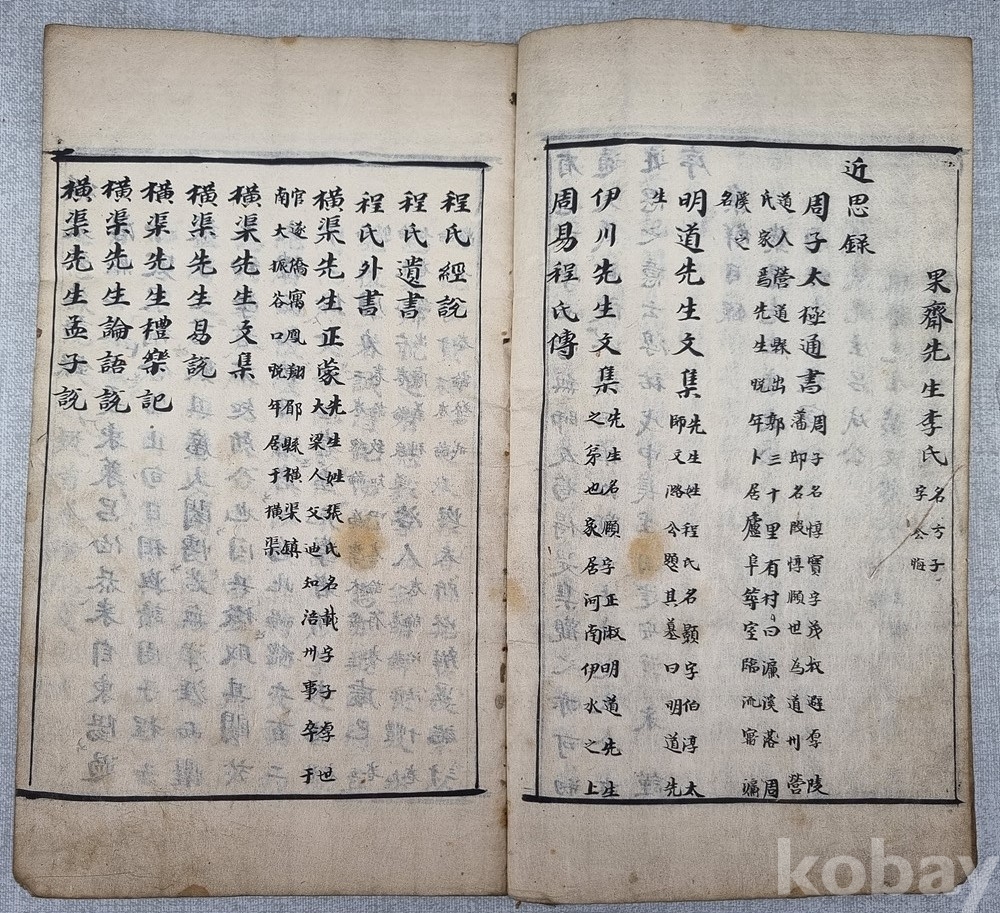 果齋先生李氏 名方子
字公晦
近思錄
周子太極通書 周子名惇實字茂叔避厚陵
藩邸名改惇頤世為道州營
道人營道縣出郭三十里有村曰濂溪落周
氏家焉先生晚年卜居廬阜築室臨流寓濂
溪之
名
明道先生文集 先生姓程氏名顥字伯淳太
師文潞公題其墓曰明道先
生
伊川先生文集 先生名頤字正淑明道先生
之弟也家居河南伊水之上
周易程氏傳
程氏經說
程氏遺書
程氏外書
橫渠先生正蒙 先生姓張氏名載字子厚世
大梁人父迪知涪州事卒于
官遂僑寓鳳翔郿縣橫渠鎮
南大振谷口晚年居于橫渠
橫渠先生文集
橫渠先生易說
橫渠先生禮樂記
橫渠先生論語說
橫渠先生孟子說
kobay